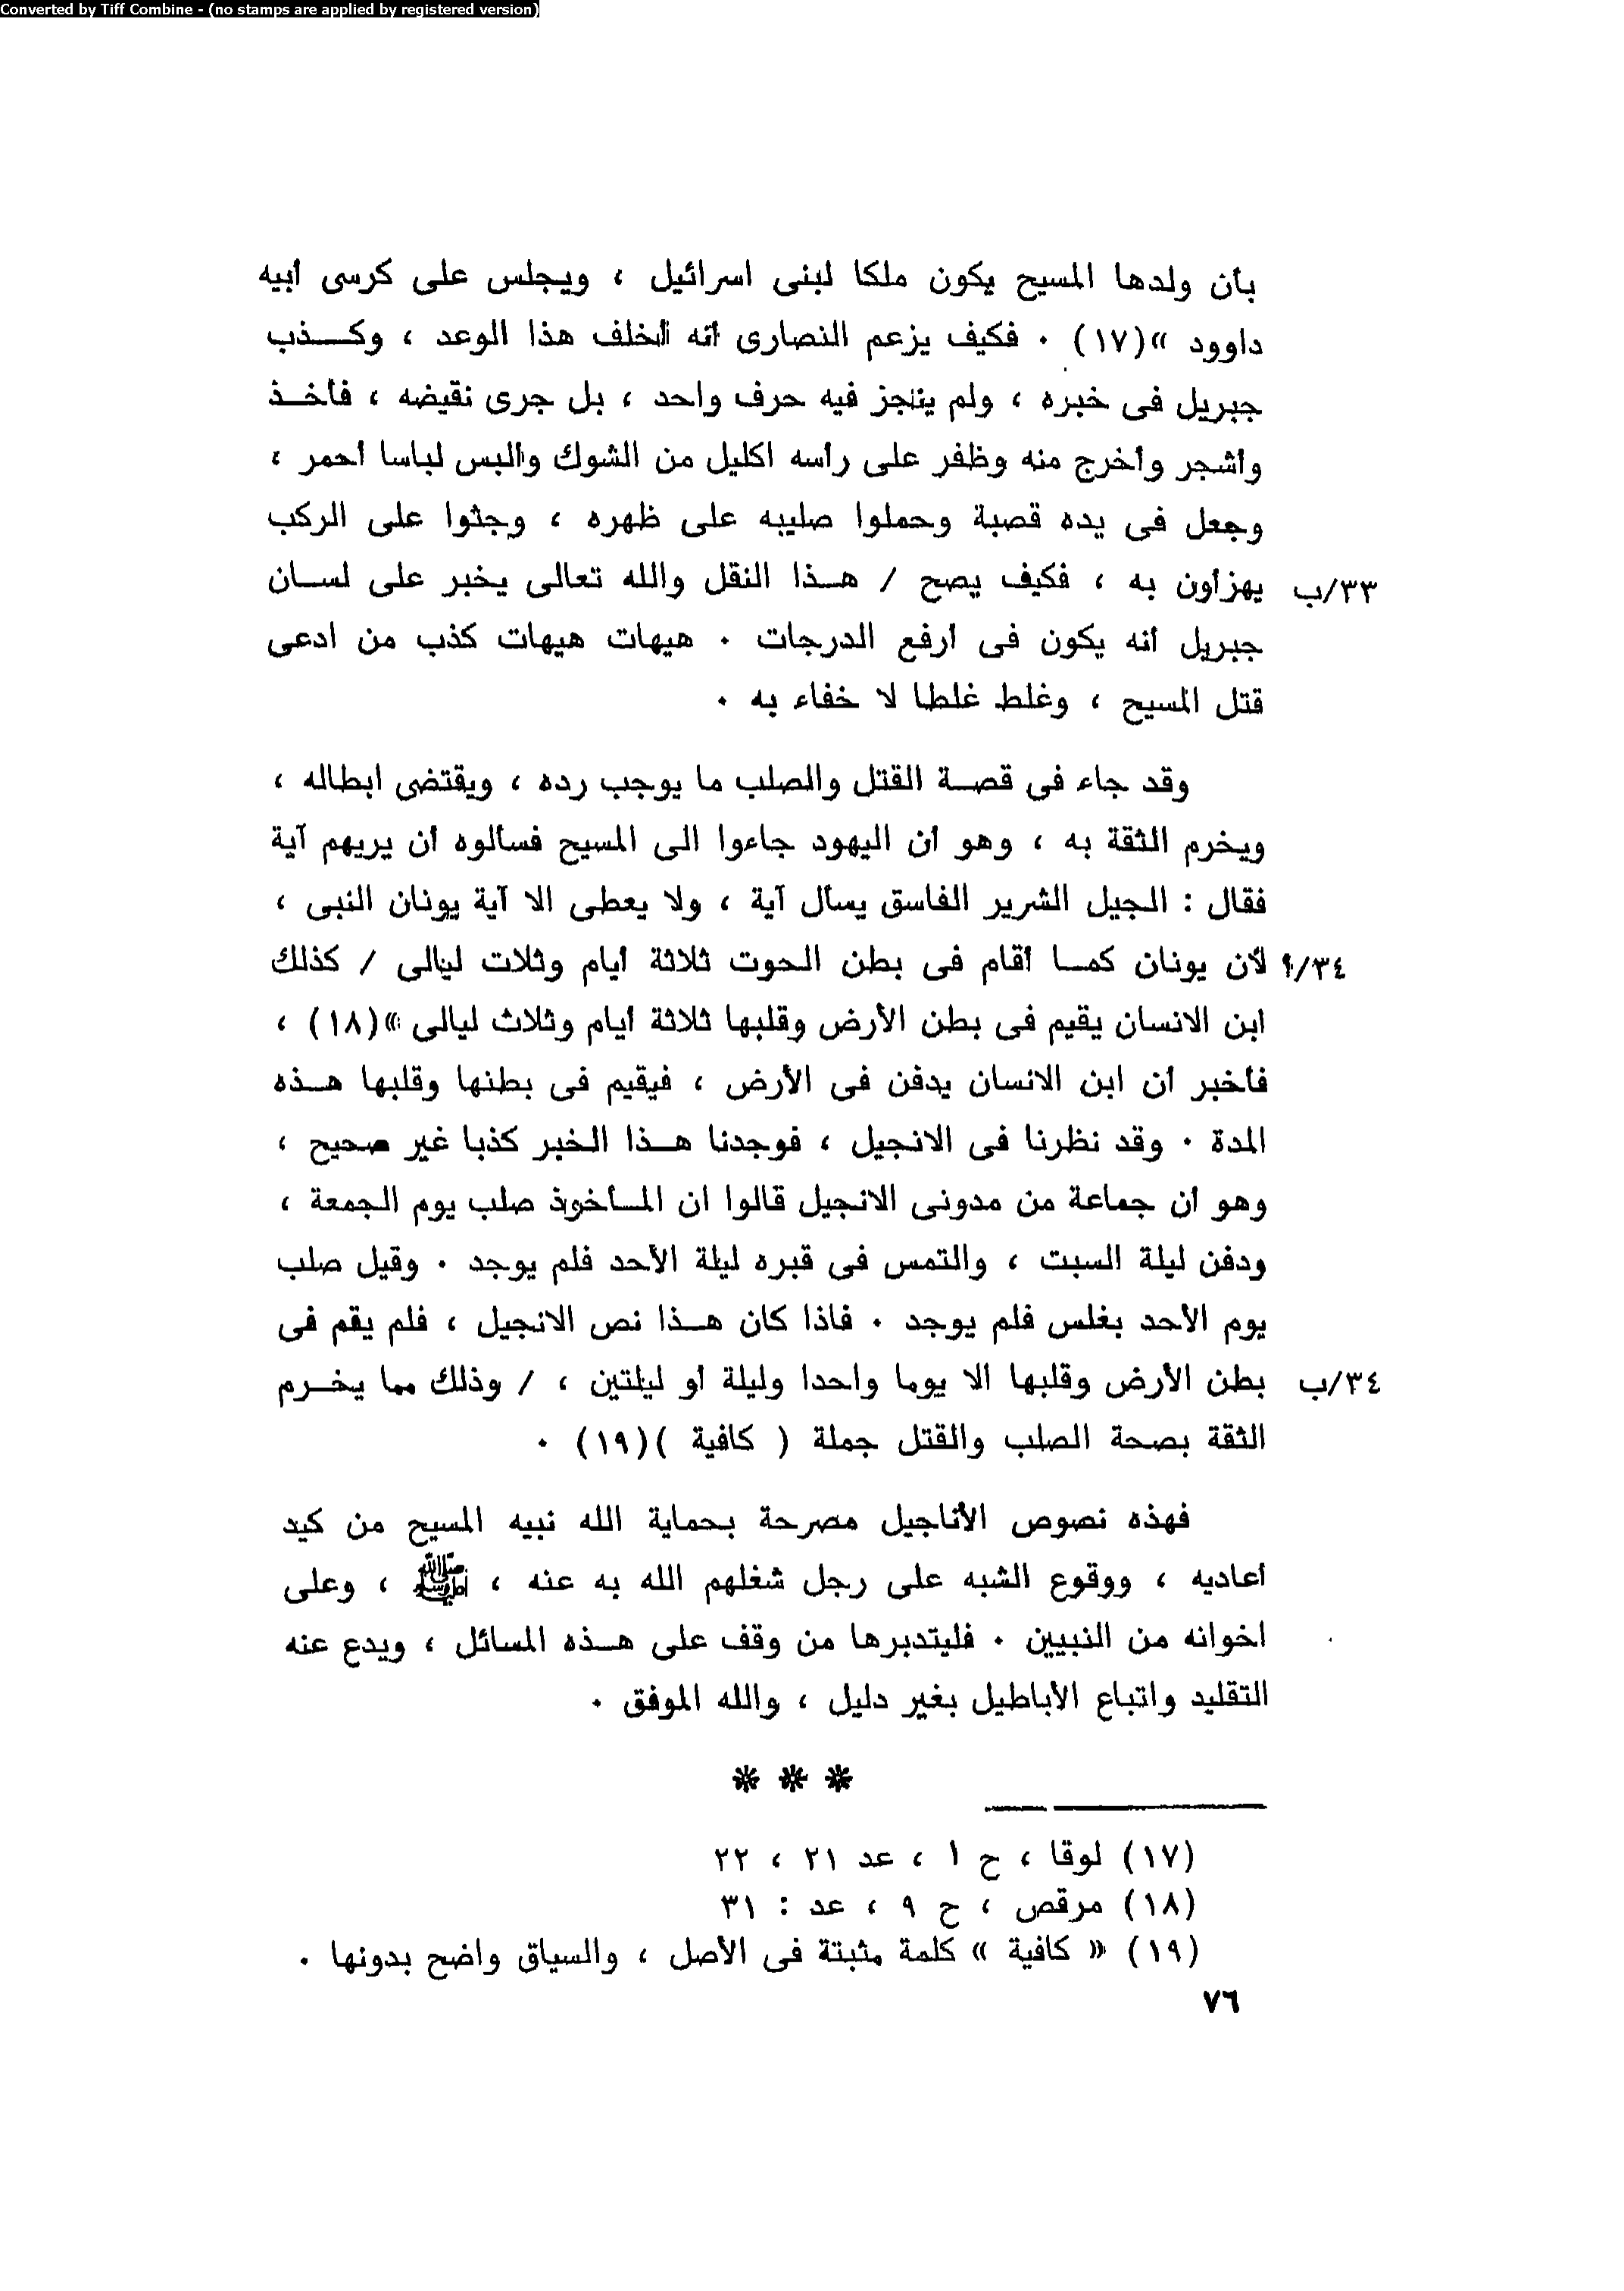 Converted by Tiff Combine - (no stamps are applied by registered version)
بأن ولدها المسيح يكون ملكا لبنى اسرائيل ، ويجلس على كرسى أبيه
داوود »(١٧) ٠ فكيف يزعم النصارى أنه أخلف هذا الوعد ، وكــذب
جبريل فى خبره ، ولم ينجز فيه حرف واحد ، بل جرى نقيضه ، فأخــذ
وأشجر وأخرج منه وظفر على رأسه اكليل من الشوك وألبس لباسا أحمر ،
وجعل فى يده قصبة وحملوا صليبه على ظهره ، وجثوا على الركب
٣٣/ب يهزأون به ، فكيف يصح / هــذا النقل والله تعالى يخبر على لســان
جبريل أنه يكون فى أرفع الدرجات ٠ هيهات هيهات كذب من ادعى
قتل المسيح ، وغلط غلطا لا خفاء به ٠
وقد جاء فى قصــة القتل والصلب ما يوجب رده ، ويقتضى ابطاله ،
ويخرم الثقة به ، وهو أن اليهود جاءوا الى المسيح فسألوه أن يريهم آية
فقال : الجيل الشرير الفاسق يسأل آية ، ولا يعطى الا آية يونان النبى ،
٣٤/أ لأن يونان كمــا أقام فى بطن الحوت ثلاثة أيام وثلاث ليالى / كذلك
ابن الانسان يقيم فى بطن الأرض وقلبها ثلاثة أيام وثلاث ليالى »(١٨) ،
فأخبر أن ابن الانسان يدفن فى الأرض ، فيقيم فى بطنها وقلبها هــذه
المدة ٠ وقد نظرنا فى الانجيل ، فوجدنا هــذا الخبر كذبا غير صحيح ،
وهو أن جماعة من مدونى الانجيل قالوا ان المــأخوذ صلب يوم الجمعة ،
ودفن ليلة السبت ، والتمس فى قبره ليلة الأحد فلم يوجد ٠ وقيل صلب
يوم الأحد بغلس فلم يوجد ٠ فاذا كان هــذا نص الانجيل ، فلم يقم فى
٣٤/ب بطن الأرض وقلبها الا يوما واحدا وليلة أو ليلتين ، / وذلك مما يخــرم
الثقة بصحة الصلب والقتل جملة ( كافية )(١٩) ٠
فهذه نصوص الأناجيل مصرحة بحماية الله نبيه المسيح من كيد
أعاديه ، ووقوع الشبه على رجل شغلهم الله به عنه ، ﷺ ، وعلى
اخوانه من النبيين ٠ فليتدبرها من وقف على هــذه المسائل ، ويدع عنه
التقليد واتباع الأباطيل بغير دليل ، والله الموفق ٠
✻ ✻ ✻
(١٧) لوقا ، ح ١ ، عد ٢١ ، ٢٢
(١٨) مرقص ، ح ٩ ، عد : ٣١
(١٩) « كافية » كلمة مثبتة فى الأصل ، والسياق واضح بدونها ٠
٧٦